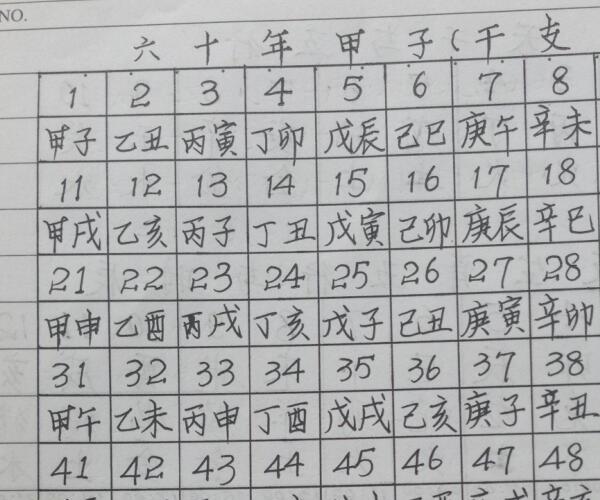 NO.
六十年甲子(干支
1 2 3 4 5 6 7 8
甲子 乙丑 丙寅 丁卯 戊辰 己巳 庚午 辛未
11 12 13 14 15 16 17 18
甲戌 乙亥 丙子 丁丑 戊寅 己卯 庚辰 辛巳
21 22 23 24 25 26 27 28
甲申 乙酉 丙戌 丁亥 戊子 己丑 庚寅 辛卯
31 32 33 34 35 36 37 38
甲午 乙未 丙申 丁酉 戊戌 己亥 庚子 辛丑
41 42 43 44 45 46 47 48